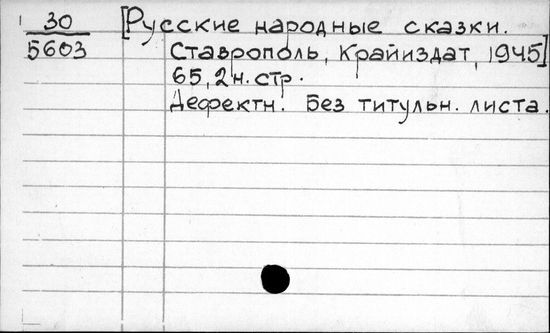 30 [Русские народные сказки.
5603 Ставрополь, Крайиздат, 1945]
65, 2 н. стр.
Дефектн. Без титульн. листа.